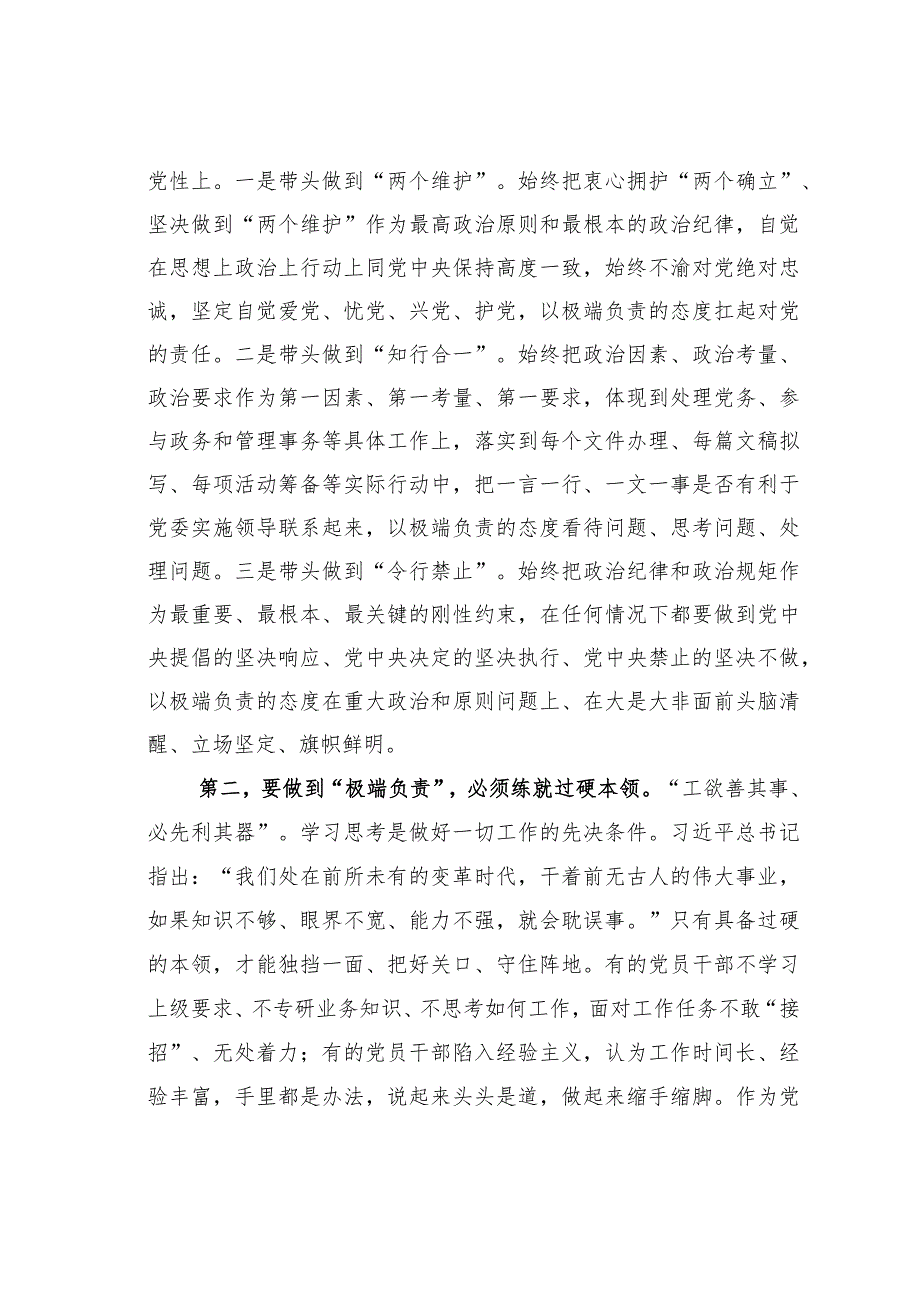 党性上。一是带头做到“两个维护”。始终把衷心拥护“两个确立”、
坚决做到“两个维护”作为最高政治原则和最根本的政治纪律，自觉
在思想上政治上行动上同党中央保持高度一致，始终不渝对党绝对忠
诚，坚定自觉爱党、忧党、兴党、护党，以极端负责的态度扛起对党
的责任。二是带头做到“知行合一”。始终把政治因素、政治考量、
政治要求作为第一因素、第一考量、第一要求，体现到处理党务、参
与政务和管理事务等具体工作上，落实到每个文件办理、每篇文稿拟
写、每项活动筹备等实际行动中，把一言一行、一文一事是否有利于
党委实施领导联系起来，以极端负责的态度看待问题、思考问题、处
理问题。三是带头做到“令行禁止”。始终把政治纪律和政治规矩作
为最重要、最根本、最关键的刚性约束，在任何情况下都要做到党中
央提倡的坚决响应、党中央决定的坚决执行、党中央禁止的坚决不做，
以极端负责的态度在重大政治和原则问题上、在大是大非面前头脑清
醒、立场坚定、旗帜鲜明。
第二，要做到“极端负责”，必须练就过硬本领。“工欲善其事、
必先利其器”。学习思考是做好一切工作的先决条件。习近平总书记
指出：“我们处在前所未有的变革时代，干着前无古人的伟大事业，
如果知识不够、眼界不宽、能力不强，就会耽误事。”只有具备过硬
的本领，才能独挡一面、把好关口、守住阵地。有的党员干部不学习
上级要求、不专研业务知识、不思考如何工作，面对工作任务不敢“接
招”、无处着力；有的党员干部陷入经验主义，认为工作时间长、经
验丰富，手里都是办法，说起来头头是道，做起来缩手缩脚。作为党